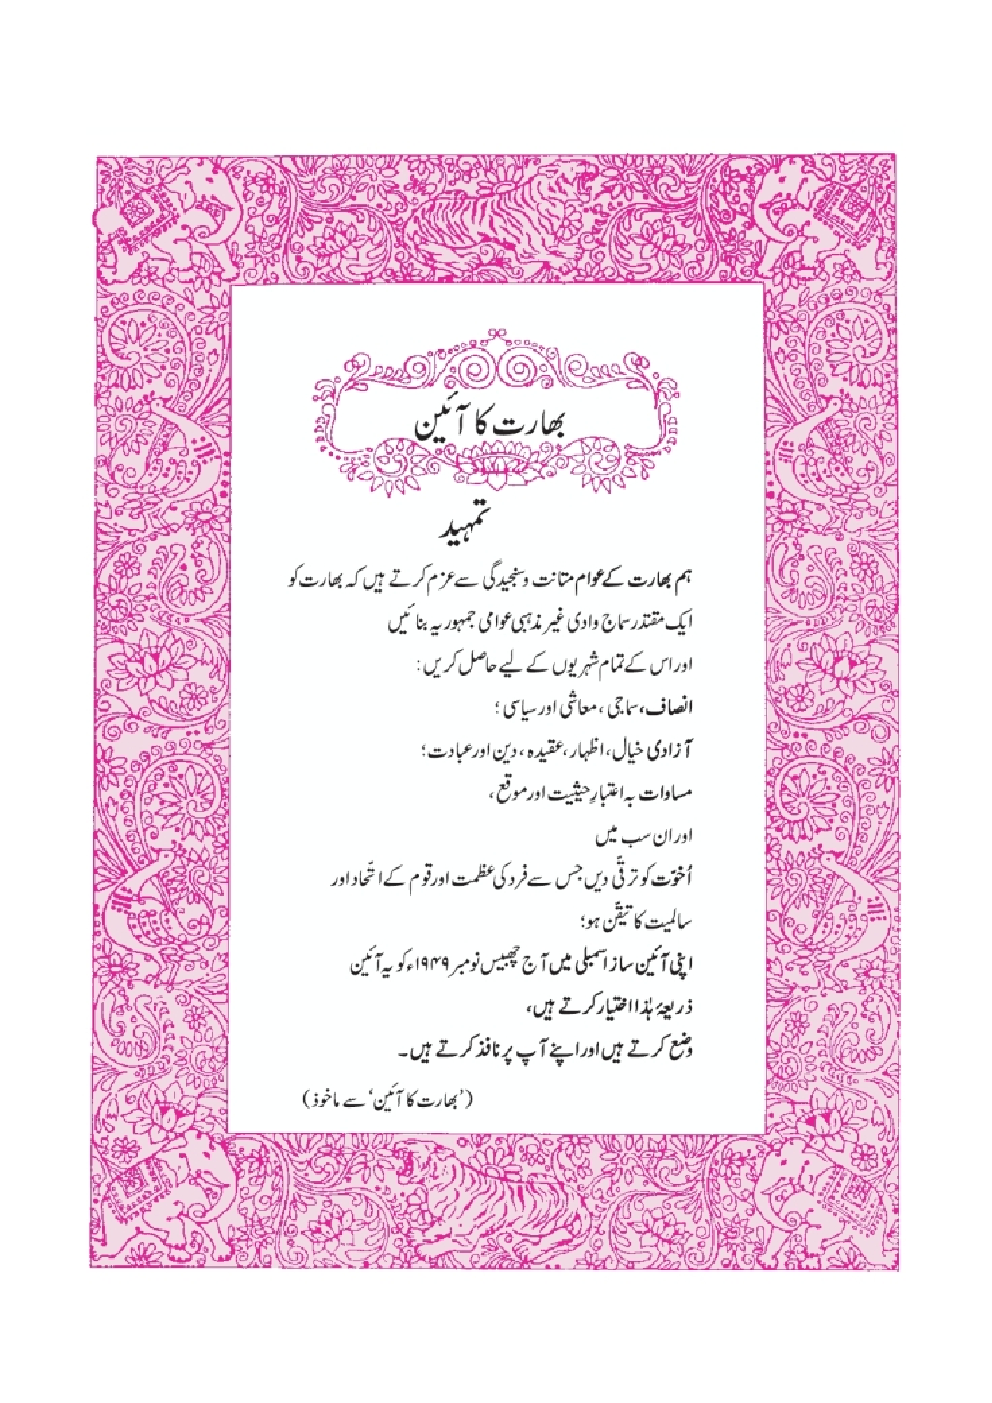 بھارت کا آئین
تمہید
ہم بھارت کے عوام متانت و سنجیدگی سے عزم کرتے ہیں کہ بھارت کو
ایک مقتدر سماج وادی غیر مذہبی عوامی جمہوریہ بنائیں
اور اس کے تمام شہریوں کے لیے حاصل کریں:
انصاف، سماجی، معاشی اور سیاسی؛
آزادی خیال، اظہار، عقیدہ، دین اور عبادت؛
مساوات بہ اعتبارِ حیثیت اور موقع،
اور ان سب میں
اُخوّت کو ترقّی دیں جس سے فرد کی عظمت اور قوم کے اتّحاد اور
سالمیت کا تیقّن ہو؛
اپنی آئین ساز اسمبلی میں آج چھبیس نومبر ۱۹۴۹ء کو یہ آئین
ذریعۂ ہٰذا اختیار کرتے ہیں،
وضع کرتے ہیں اور اپنے آپ پر نافذ کرتے ہیں۔
(’بھارت کا آئین‘ سے ماخوذ)